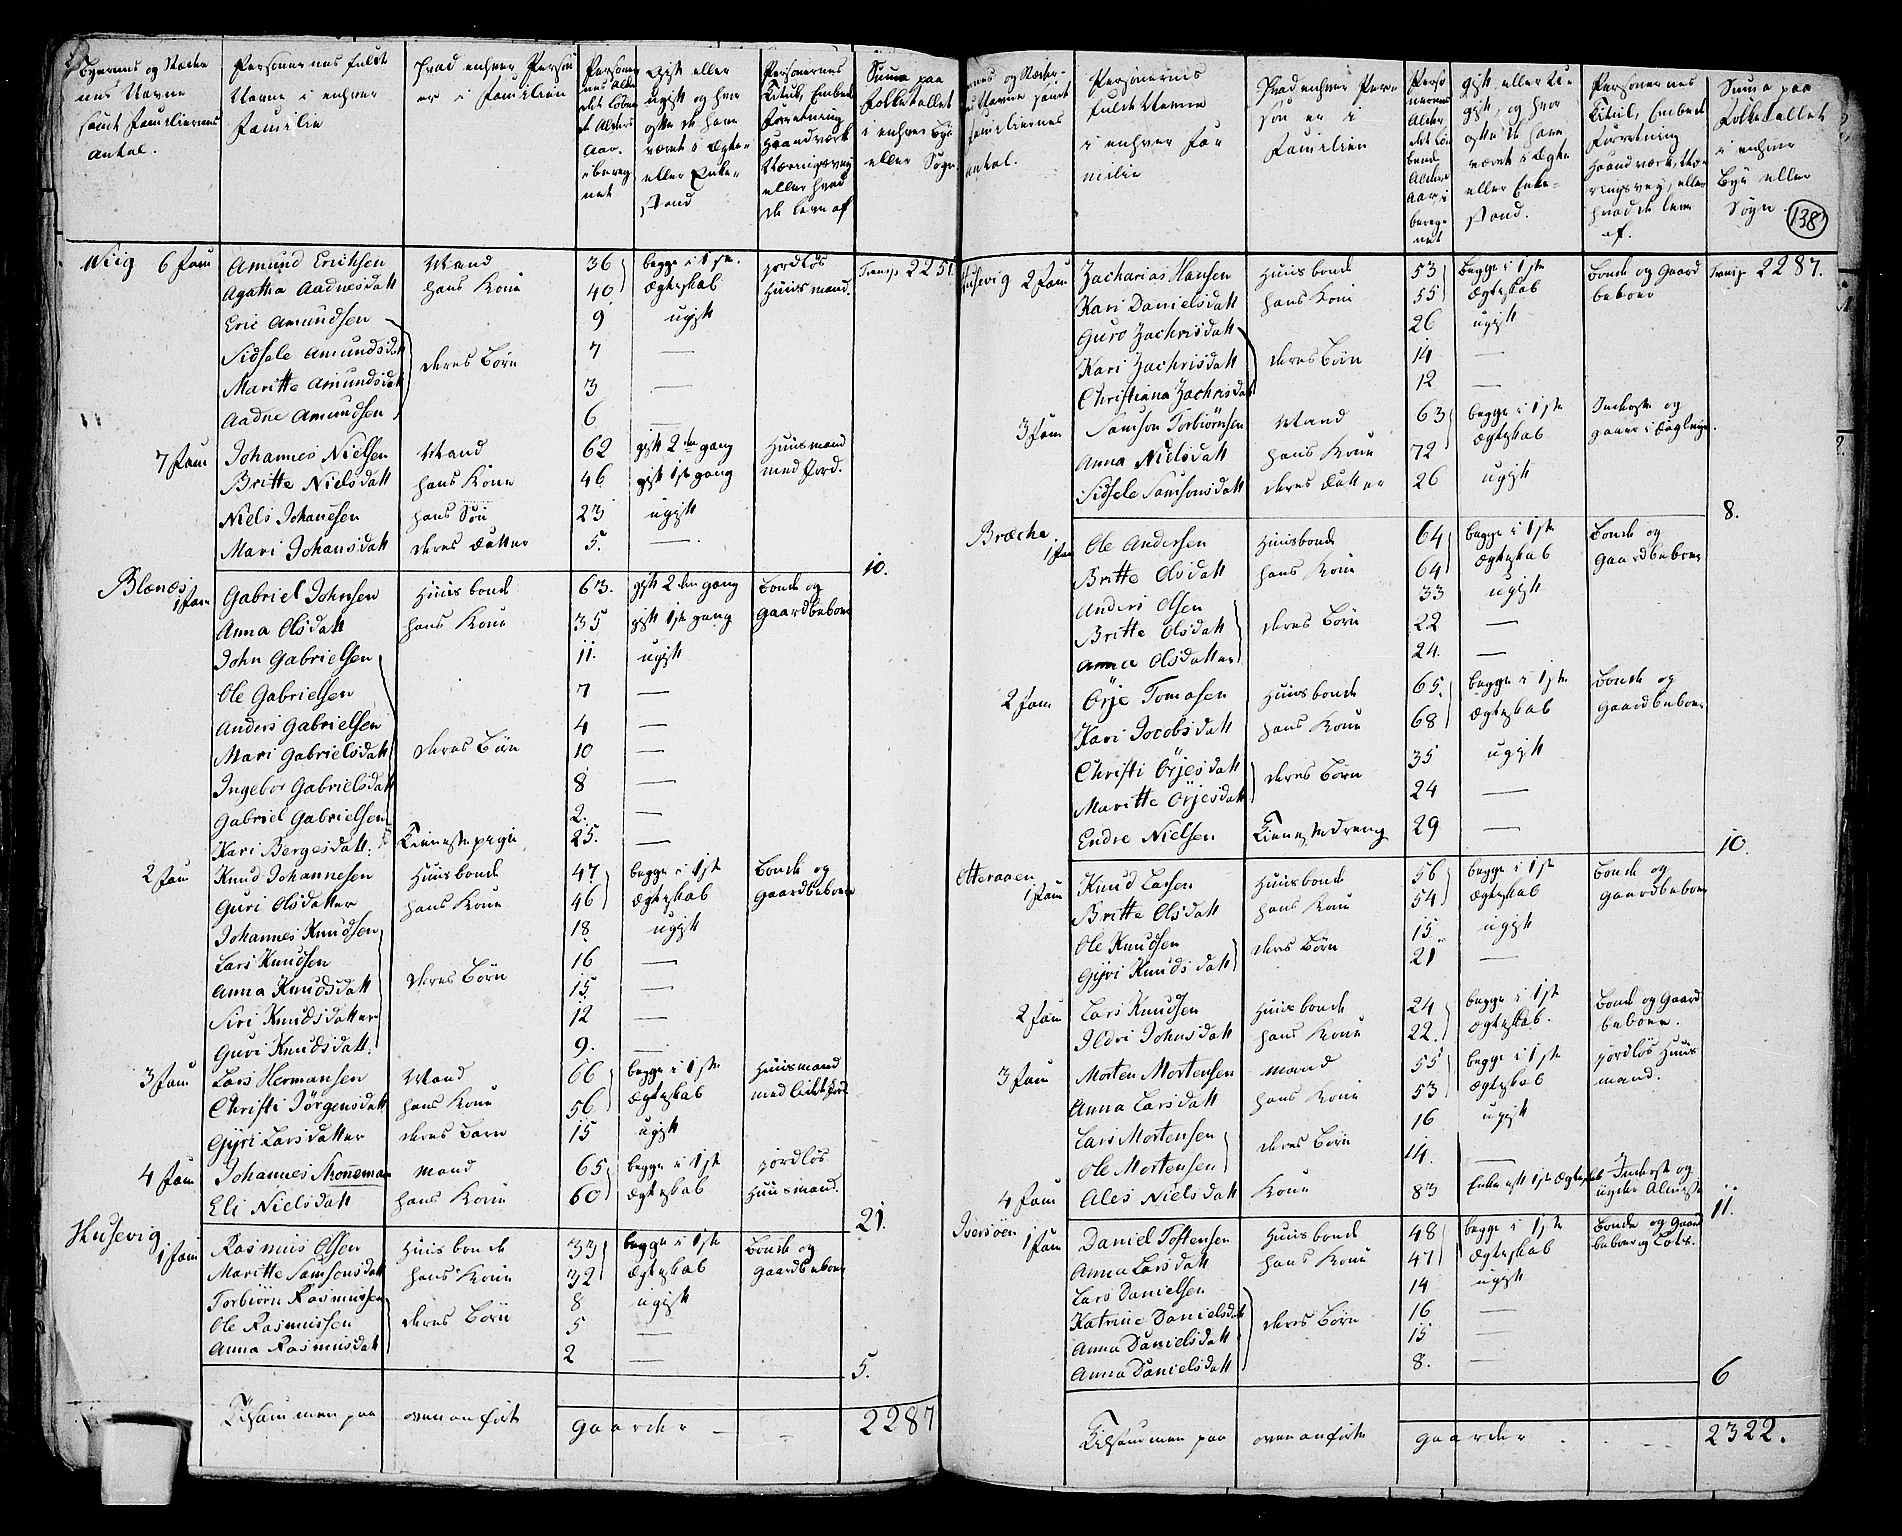 Byernes og Stæder
nes Navne
samt Familiernes
Antal.
Personernes fulde
Navne i enhver
Familie
Hvad enhver Person
er i Familien
Personer
nes Alder
det løben
de Alders
Aar
iberegnet
Gift eller
ugift og hvor
ofte de have
været i Ægte-
eller Enke-
stand
Personernes
Titul, Embede
Forretning
Haandværk
Næringsvey
eller hvad
de leve af
Summa paa
Folketallet
i enhver Bye
eller Sogn
Wiig 6 Fam Amund Erichsen Mand 36 begge i 1ste jordløs Transp 2251
Agatha Aadnesdatt hans Kone 40 Ægteskab Huusmand.
Eric Amundsen 9 ugift
Sidsele Amundsdatt deres Børn 7 —
Maritte Amundsdatt 3 —
Aadne Amundsen 6 —
7 Fam Johannes Nielsen Mand 62 gift 2den gang Huusmand
Britte Nielsdatt hans Kone 46 gift 1ste gang med Jord.
Niels Johanesen hans Søn 23 ugift
Mari Johansdatt deres Datter 5. — 10.
Blænes 1 Fam Gabriel Johnsen Huusbonde 63. gift 2den gang Bonde og
Anna Olsdatt hans Kone 35 gift 1ste gang Gaardbeboer
John Gabrielsen 11. ugift
Ole Gabrielsen 7 —
Anders Gabrielsen 4 —
Mari Gabrielsdatt deres Børn 10 —
Ingebor Gabrielsdatt 8 —
Gabriel Gabrielsen 2. —
Kari Bergesdatt. Tienestepige 25. —
2 Fam Knud Johannesen Huusbonde 47 begge i 1ste Bonde og
Guri Olsdatter hans Kone 46 Ægteskab Gaardbeboer
Johannes Knudsen 18 ugift
Lars Knudsen 16 —
Anna Knudsdatt deres Børn 15 —
Siri Knudsdatter 12 —
Guri Knudsdatt. 9. —
3 Fam Lars Hermansen Mand 66 begge i 1ste Huusmand
Christi Jörgensdatt hans Kone 56 Ægteskab med lidt Jord
Gjyri Larsdatter deres Barn 15 ugift
4 Fam Johannes Skoneman mand 65 begge i 1ste jordløs
Eli Nielsdatt hans Kone 60 Ægteskab Huusmand. 21.
Husevig 1 Fam Rasmus Olsen Huusbonde 33 begge i 1ste Bonde og
Maritte Samsonsdatt hans Kone 32 Ægteskab Gaardbeboer
Torbiørn Rasmussen 8 ugift
Ole Rasmussen deres Børn 5 —
Anna Rasmusdatt 2 — 5.
Tilsammen paa ovenanførte Gaarder — 2287
138
nes og Stæder-
s Navne samt
amiliernes
Antal.
Personernes
fulde Navne
i enhver Fa
milie
Hvad enhver Per
son er i
Familien
Perso
nernes
Alder
det lø
bende
Alders
Aar i
bereg
net
gift eller u
gift, og hvor
ofte de have
været i Ægte
eller Enke-
stand.
Personernes
Titul, Embede
Forretning
Haandværk, Næ
ringsvey, eller
hvad de leve
af.
Summa paa
Folketallet
i enhver
Bye eller
Sogn
Husevig 2 Fam Zacharias Hansen Huusbonde 53 begge i 1ste Bonde og Gaard Transp 2287.
Kari Danielsdatt hans Kone 55 Ægteskab beboer
Guro Zachrisdatt 26 ugift
Kari Zachrisdatt deres Børn 14 —
Christiana Zachrisdatt 12 —
3 Fam Samson Torbiørnsen Mand 63 begge i 1ste Inderste og
Anna Nielsdatt hans Kone 72 Ægteskab gaaer i Dagleye.
Sidsele Samsonsdatt deres Datter 26 ugift 8.
Bræche 1 Fam Ole Andersen Huusbonde 64 begge i 1ste Bonde og
Britte Olsdatt hans Kone 64 Ægteskab Gaardbeboer
Anders Olsen 33 ugift
Britte Olsdatt deres Børn 22 —
Anna Olsdatter 24. —
2 Fam Örje Tomasen Huusbonde 65. begge i 1ste Bonde og
Kari Jocobsdatt hans Kone 68 Ægteskab Gaardbeboer
Christi Örjesdatt deres Børn 35 ugift
Maritte Örjesdatt 24 —
Endre Nielsen Tienestedreng 29 — 10.
Otteraaen 1 Fam Knud Larsen Huusbonde 56 begge i 1ste Bonde og
Britte Olsdatt hans Kone 54 Ægteskab Gaardbeboer
Ole Knudsen deres Børn 15 ugift
Gjyri Knudsdatt 21 —
2 Fam Lars Knudsen Huusbonde 24 begge i 1ste Bonde og Gaard
Ildri Johnsdatt hans Kone 22. Ægteskab. beboer.
3 Fam Morten Mortensen mand 55 begge i 1ste jordløs Huus
Anna Larsdatt hans Kone 53 Ægteskab mand.
Lars Mortensen deres Børn 16 ugift
Ole Mortensen 14. —
4 Fam Ales Nielsdatt Kone 83 Enke eft 1ste Ægteskab Inderste og
nyder Almisse 11.
Iversöen 1 Fam Daniel Tostensen Huusbonde 48 begge i 1ste Bonde og Gaard
Anna Larsdatt hans Kone 47 Ægteskab beboer og Lots.
Lars Danielsen 14 ugift
Katrine Danielsdatt deres Børn 16 —
Anna Danielsdatt 15 —
Anna Danielsdatt 8. — 6
Tilsammen paa ovenanførte Gaarder 2322.